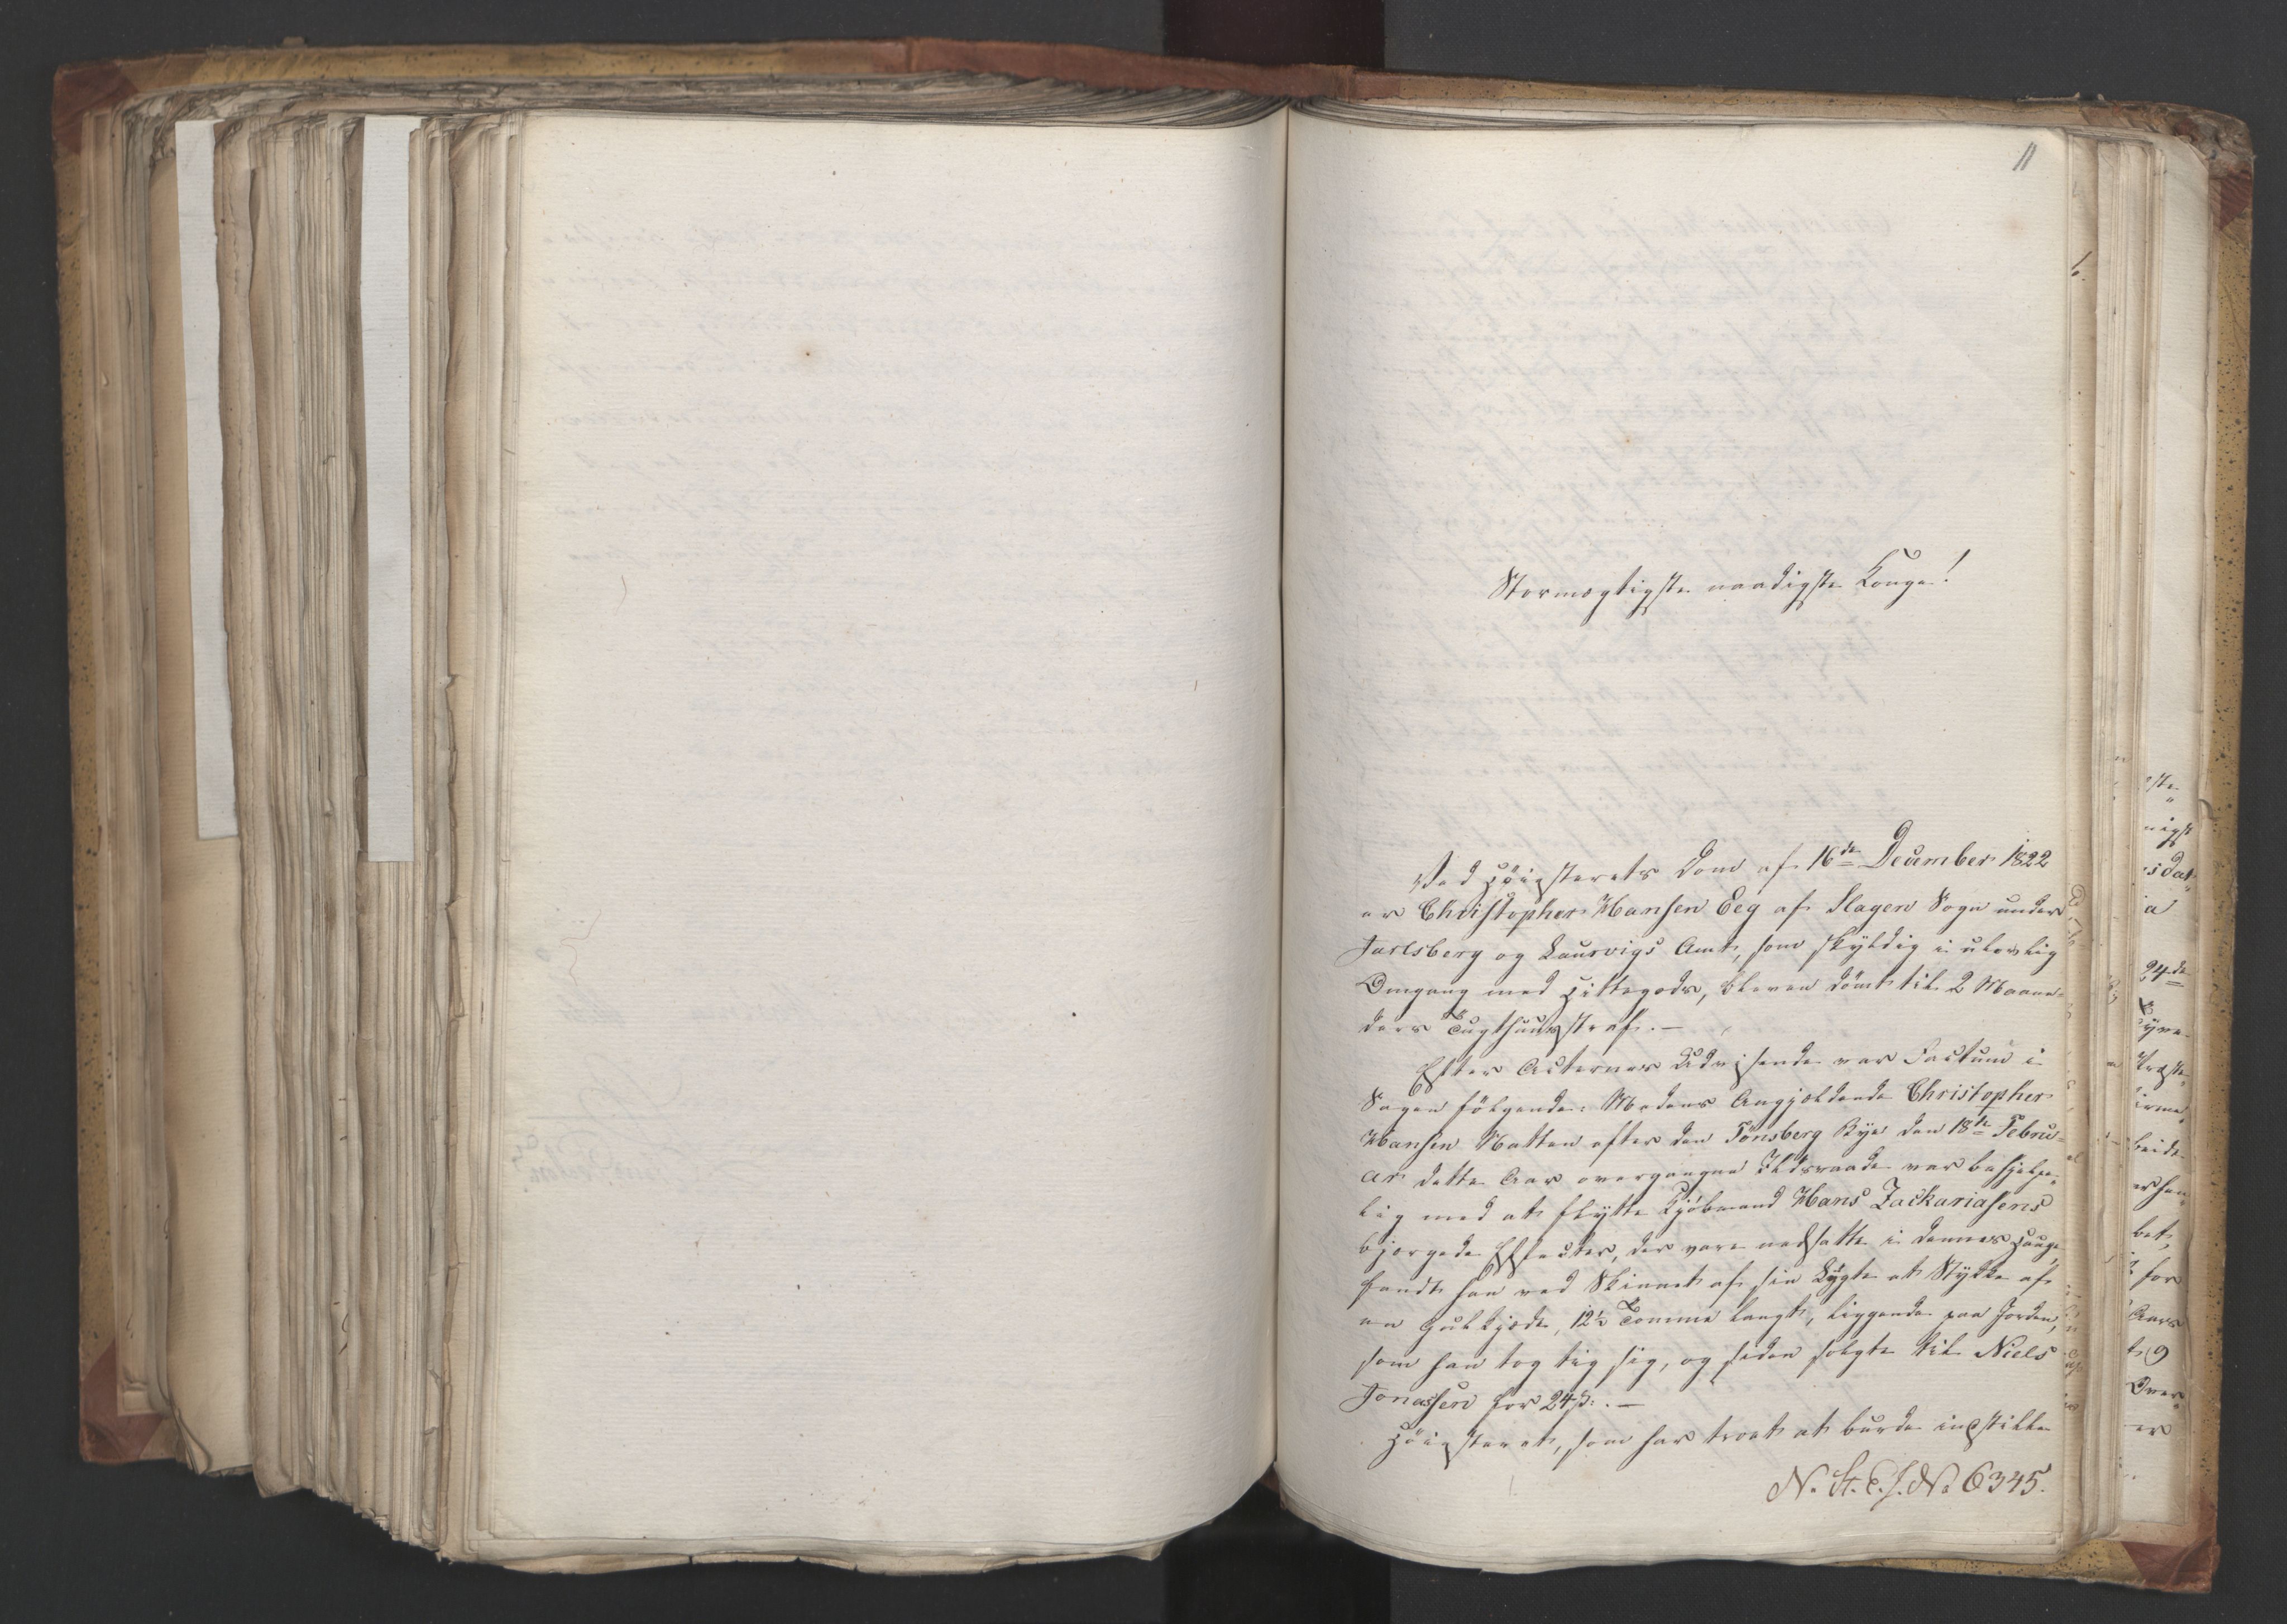 11
Stormægtigste naadigste Konge!
Ved Høiesterets Dom af 16de December 1822
er Christopher Hansen Eeg af Slagen Sogn under
Jarlsberg og Laurvigs Amt, som skyldig i ulovlig
Omgang med Hittegods, bleven dømt til 2 Maane-
ders Tugthuusstraf. —
Efter Acternes Udvisende var Factum i
Sagen følgende: Medens Angjældende Christopher
Hansen Natten efter den Tønsberg Bye den 18de Febru-
ar dette Aar overgangne Ildsvaade var behjelpe-
lig med at flytte Kjøbmand Hans Zackariasens
bjergede Effecter, der vare nedsatte i dennes Hauge,
fandt han ved Skinnet af sin Lygte et Stykke af
en Guldkjæde, 12½ Tomme langt, liggende paa Jorden,
som han tog til sig, og siden solgte til Niels
Jonassen for 24 ß. —
Høiesteret, som har troet at burde indstille
N. St. E. J. No 6345.